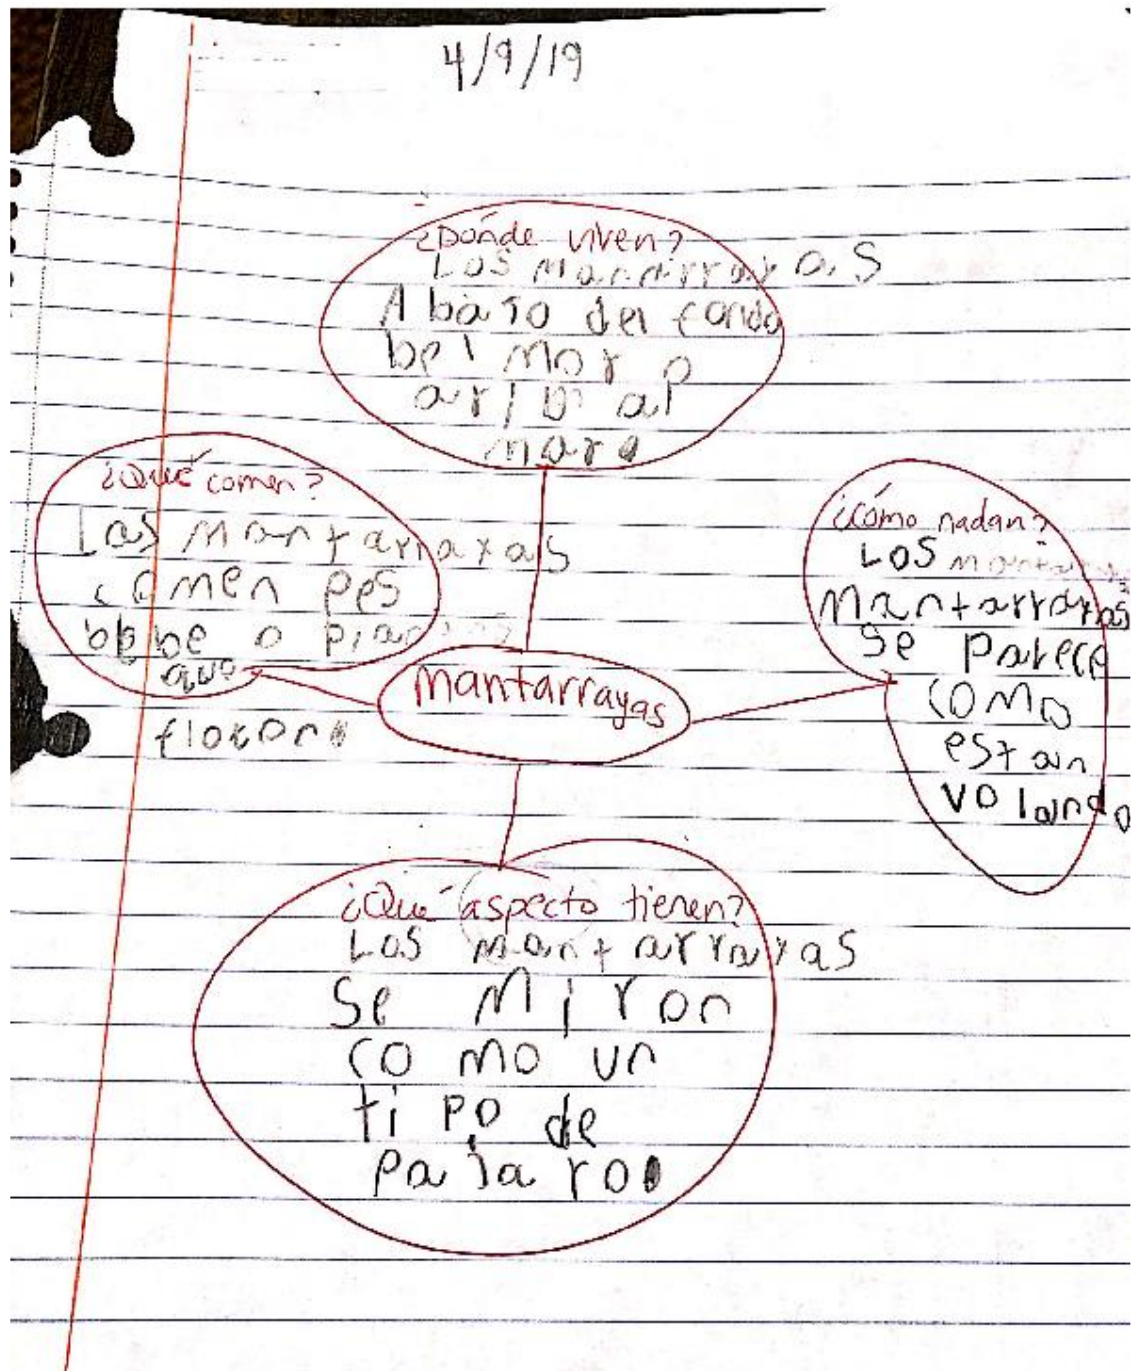 4/9/19
¿Dónde viven?
Las
A bajo del fondo
bel mar o
ariba al
mara
¿Qué comen?
Las mantarrayas
comen pes
bebe o
que
flotan
¿Cómo nadan?
Las
Mantarrayas
se parece
como
estan
volando
mantarrayas
¿Qué aspecto tienen?
Las mantarrayas
se miran
como un
tipo de
pajaro